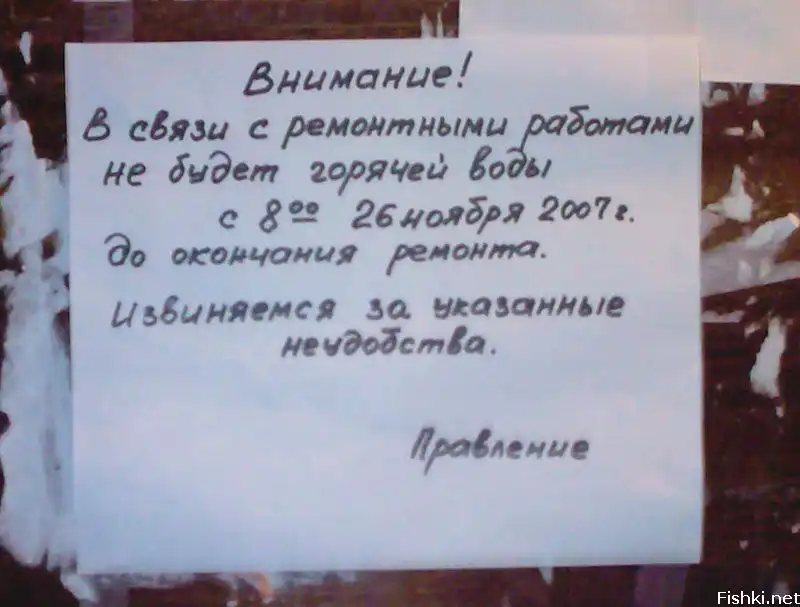 Внимание!
В связи с ремонтными работами
не будет горячей воды
с 8⁰⁰ 26 ноября 2007 г.
до окончания ремонта.
Извиняемся за указанные
неудобства.
Правление
Fishki.net